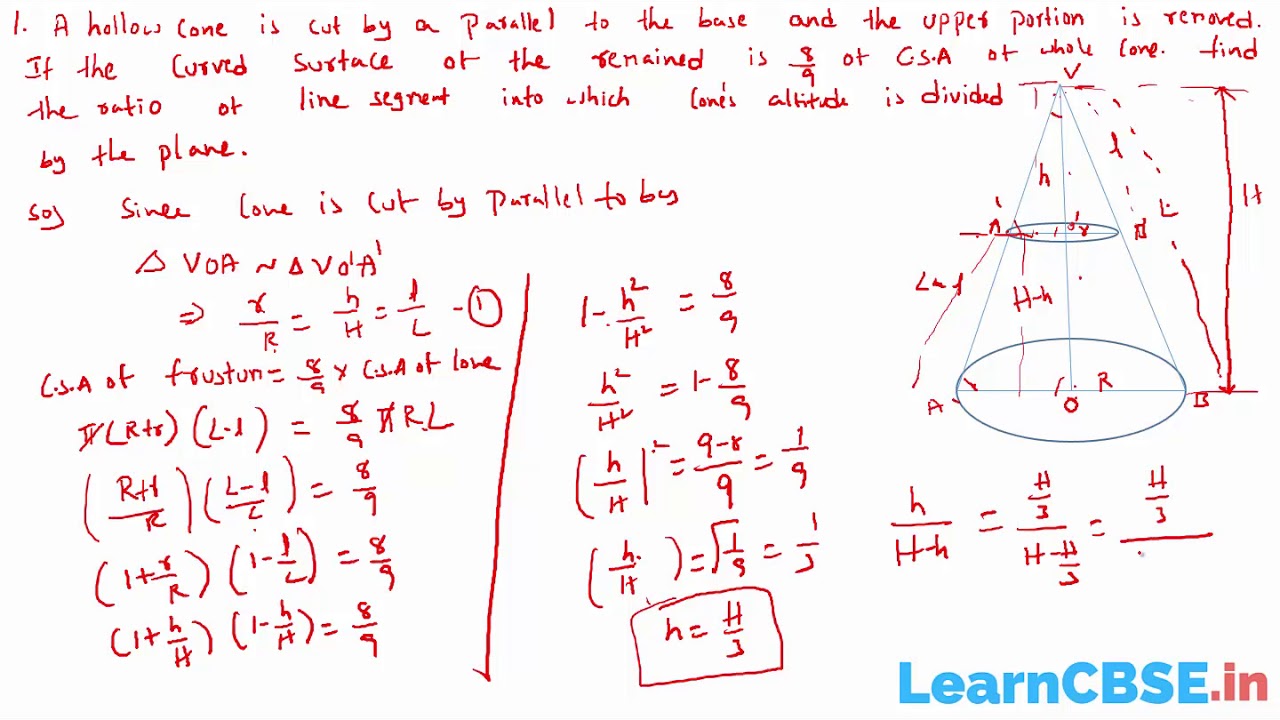 1. A hollow cone is cut by a parallel to the base and the upper portion is removed.
If the curved surface of the remained is 8/9 of C.S.A of whole cone. find
the ratio of line segment into which cone's altitude is divided
by the plane.
Since cone is cut by parallel to
Δ VOA ~ Δ VO'A'
⇒ r/R = h/H = l/L - ①
C.S.A of frustum = 8/9 × C.S.A of cone
π(R+r)(L-l) = 8/9 πRL
((R+r)/R)((L-l)/L) = 8/9
(1+r/R)(1-l/L) = 8/9
(1+h/H)(1-h/H) = 8/9
1-h²/H² = 8/9
h²/H² = 1-8/9
(h/H)² = (9-8)/9 = 1/9
(h/H) = √1/9 = 1/3
h = H/3
V
h
l
L
H
A'
O'
r
B'
L-l
H-h
R
A
O
B
h/(H-h) = (H/3)/(H-H/3) = (H/3)/
LearnCBSE.in